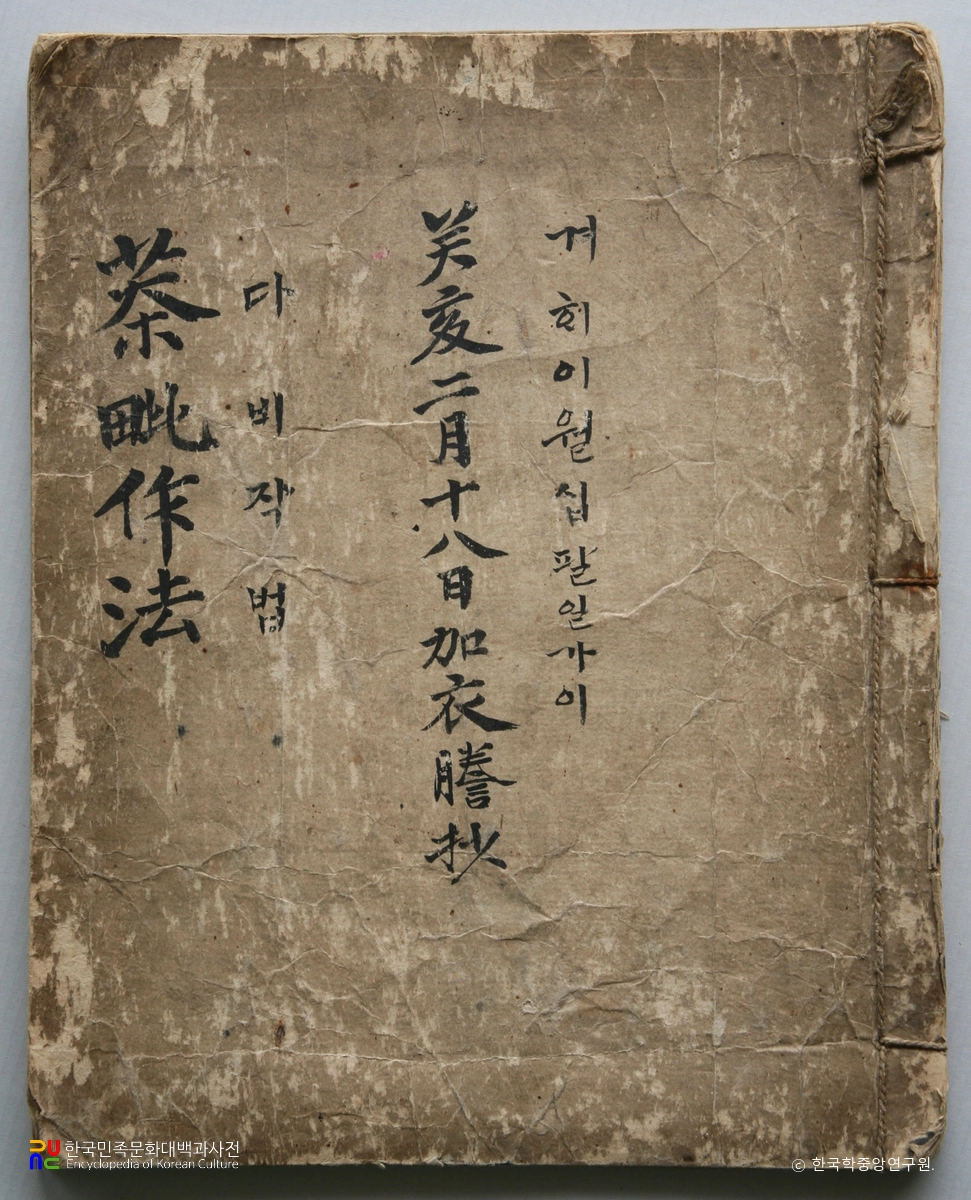 겨회이월십팔일가이
癸亥二月十八日加衣謄抄
다비작법
茶毗作法
한국민족문화대백과사전
Encyclopedia of Korean Culture
© 한국학중앙연구원.